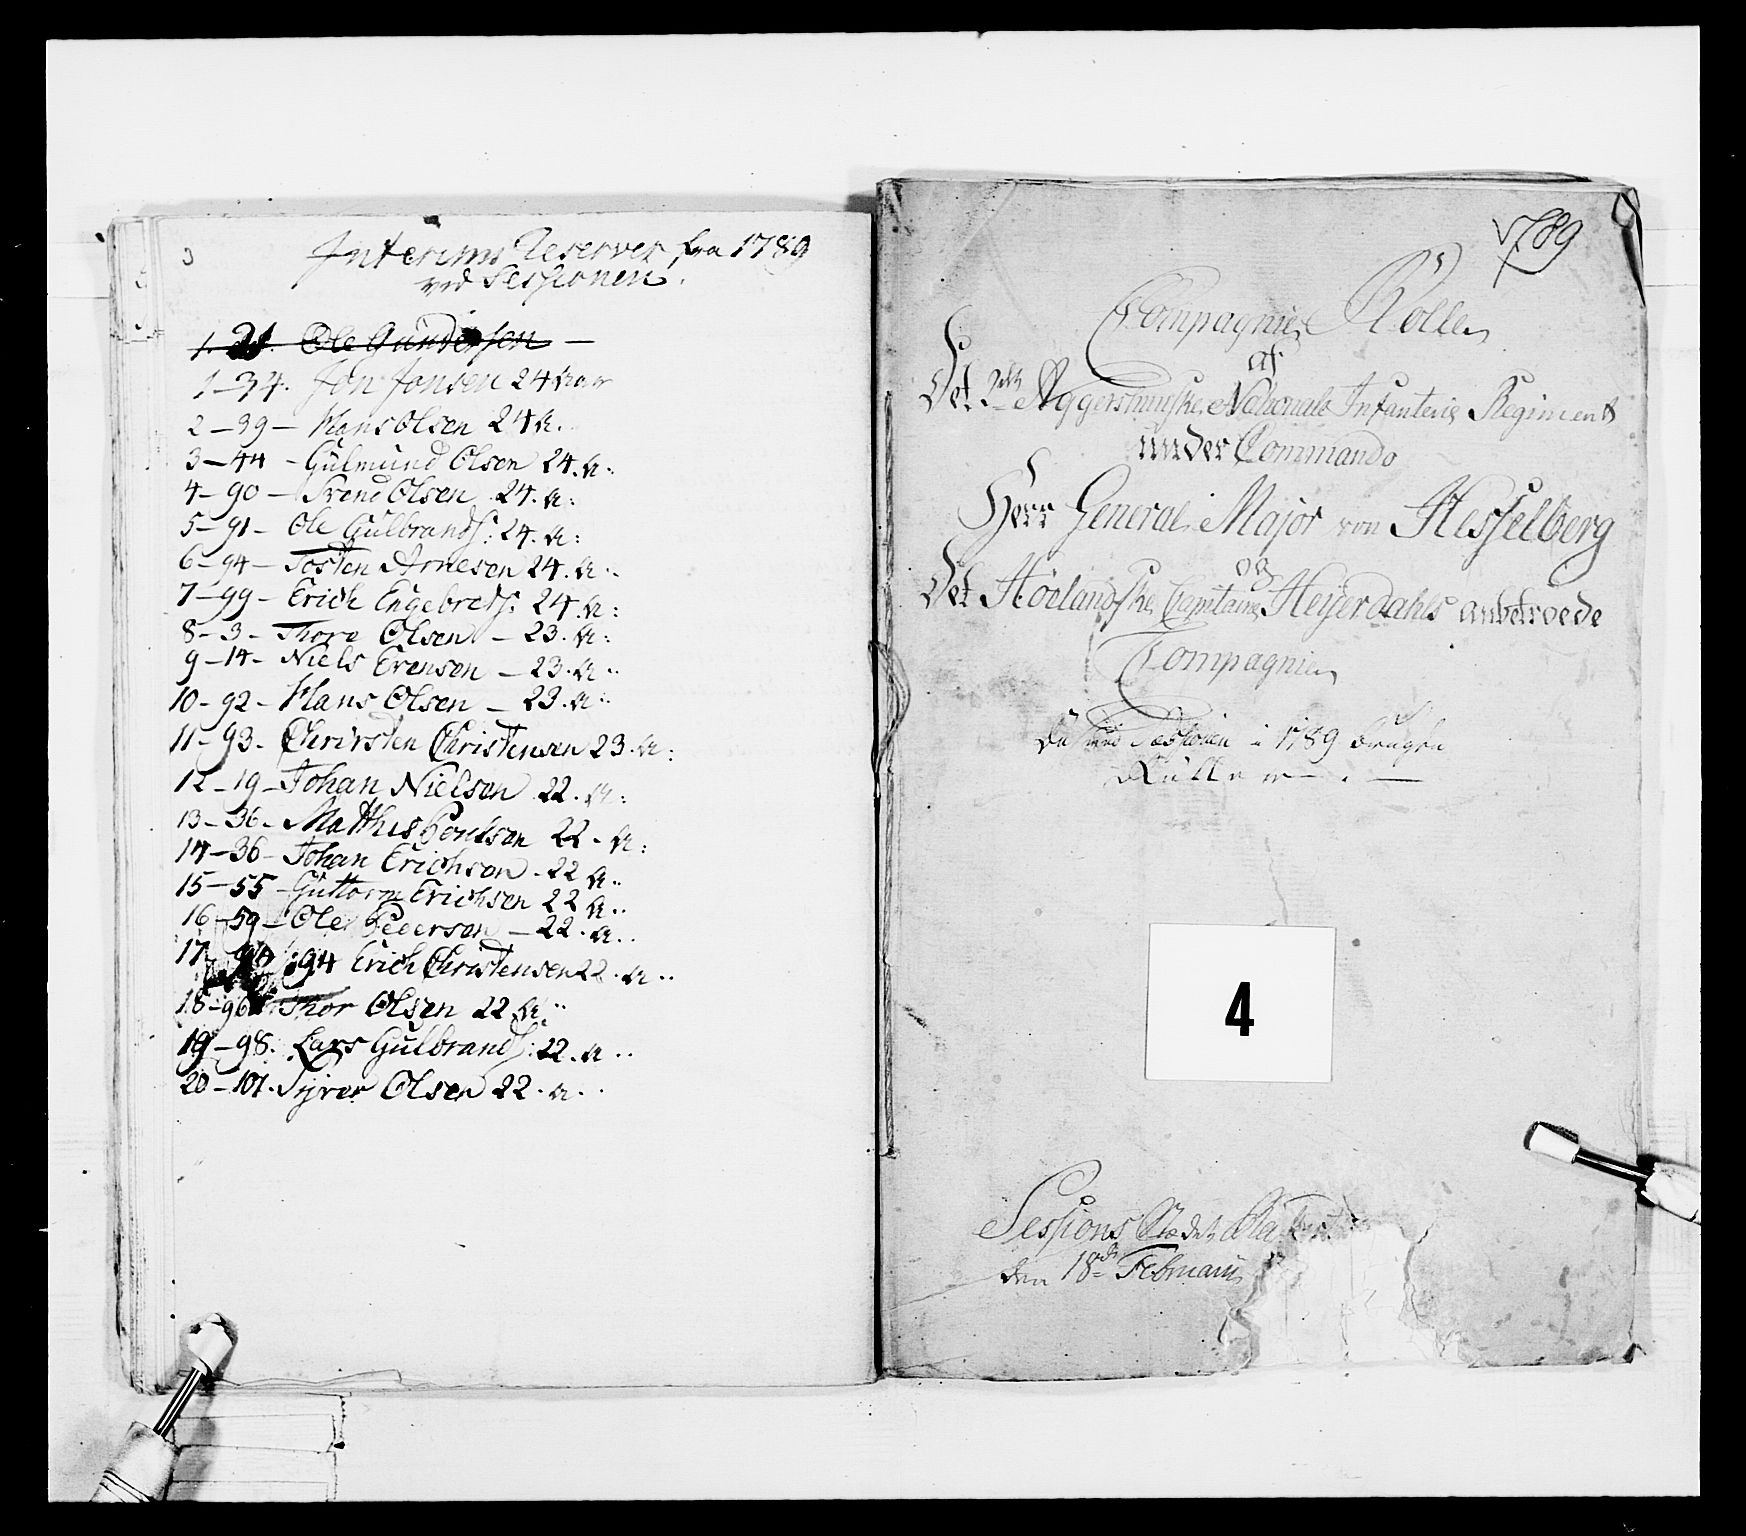 Interims Reserver fra 1789
ved Sessionen.
1. 21. Ole Gundersen —
1 – 34. Jon Jonsen 24 aar
2 – 39 – Hans Olsen 24 A.
3 – 44 – Gulmund Olsen 24. A:
4 – 90 – Svend Olsen 24. A:
5 – 91 – Ole Gulbrands: 24. A:
6 – 94 – Tosten Arnesen 24. A..
7 – 99 – Erich Engebrets: 24. A:
8 – 3 – Thore Olsen – 23. A:
9 – 14 – Niels Evensen – 23. A..
10 – 92 – Hans Olsen – 23. A..
11 – 93 – Christen Christensen 23. A:
12 – 19 – Johan Nielsen 22. A:
13 – 36 – Matthis Poulsen 22 – A:
14 – 36 – Johan Erichsen – 22 A..
15 – 55 – Guttorm Erichsen 22 A..
16 – 59 – Ole Pedersen – 22. A..
17 – 94 Erich Christensen 22. A..
18 – 96 Thor Olsen 22 A..
19 – 98. Lars Gulbrands: 22. A..
20 – 101. Syver Olsen 22. A..
1789
Compagnie Rolle
af
Det 2det Aggershuusiske Nationale Infanterie Regiment
under Commando
Herr General Major von Hesselberg
og
Det Hølandske Capitaine Heyerdahls anbetroede
Compagnie
Sessionen i 1789
Rulle
4
Sessions Stædet
den 18de Februarii